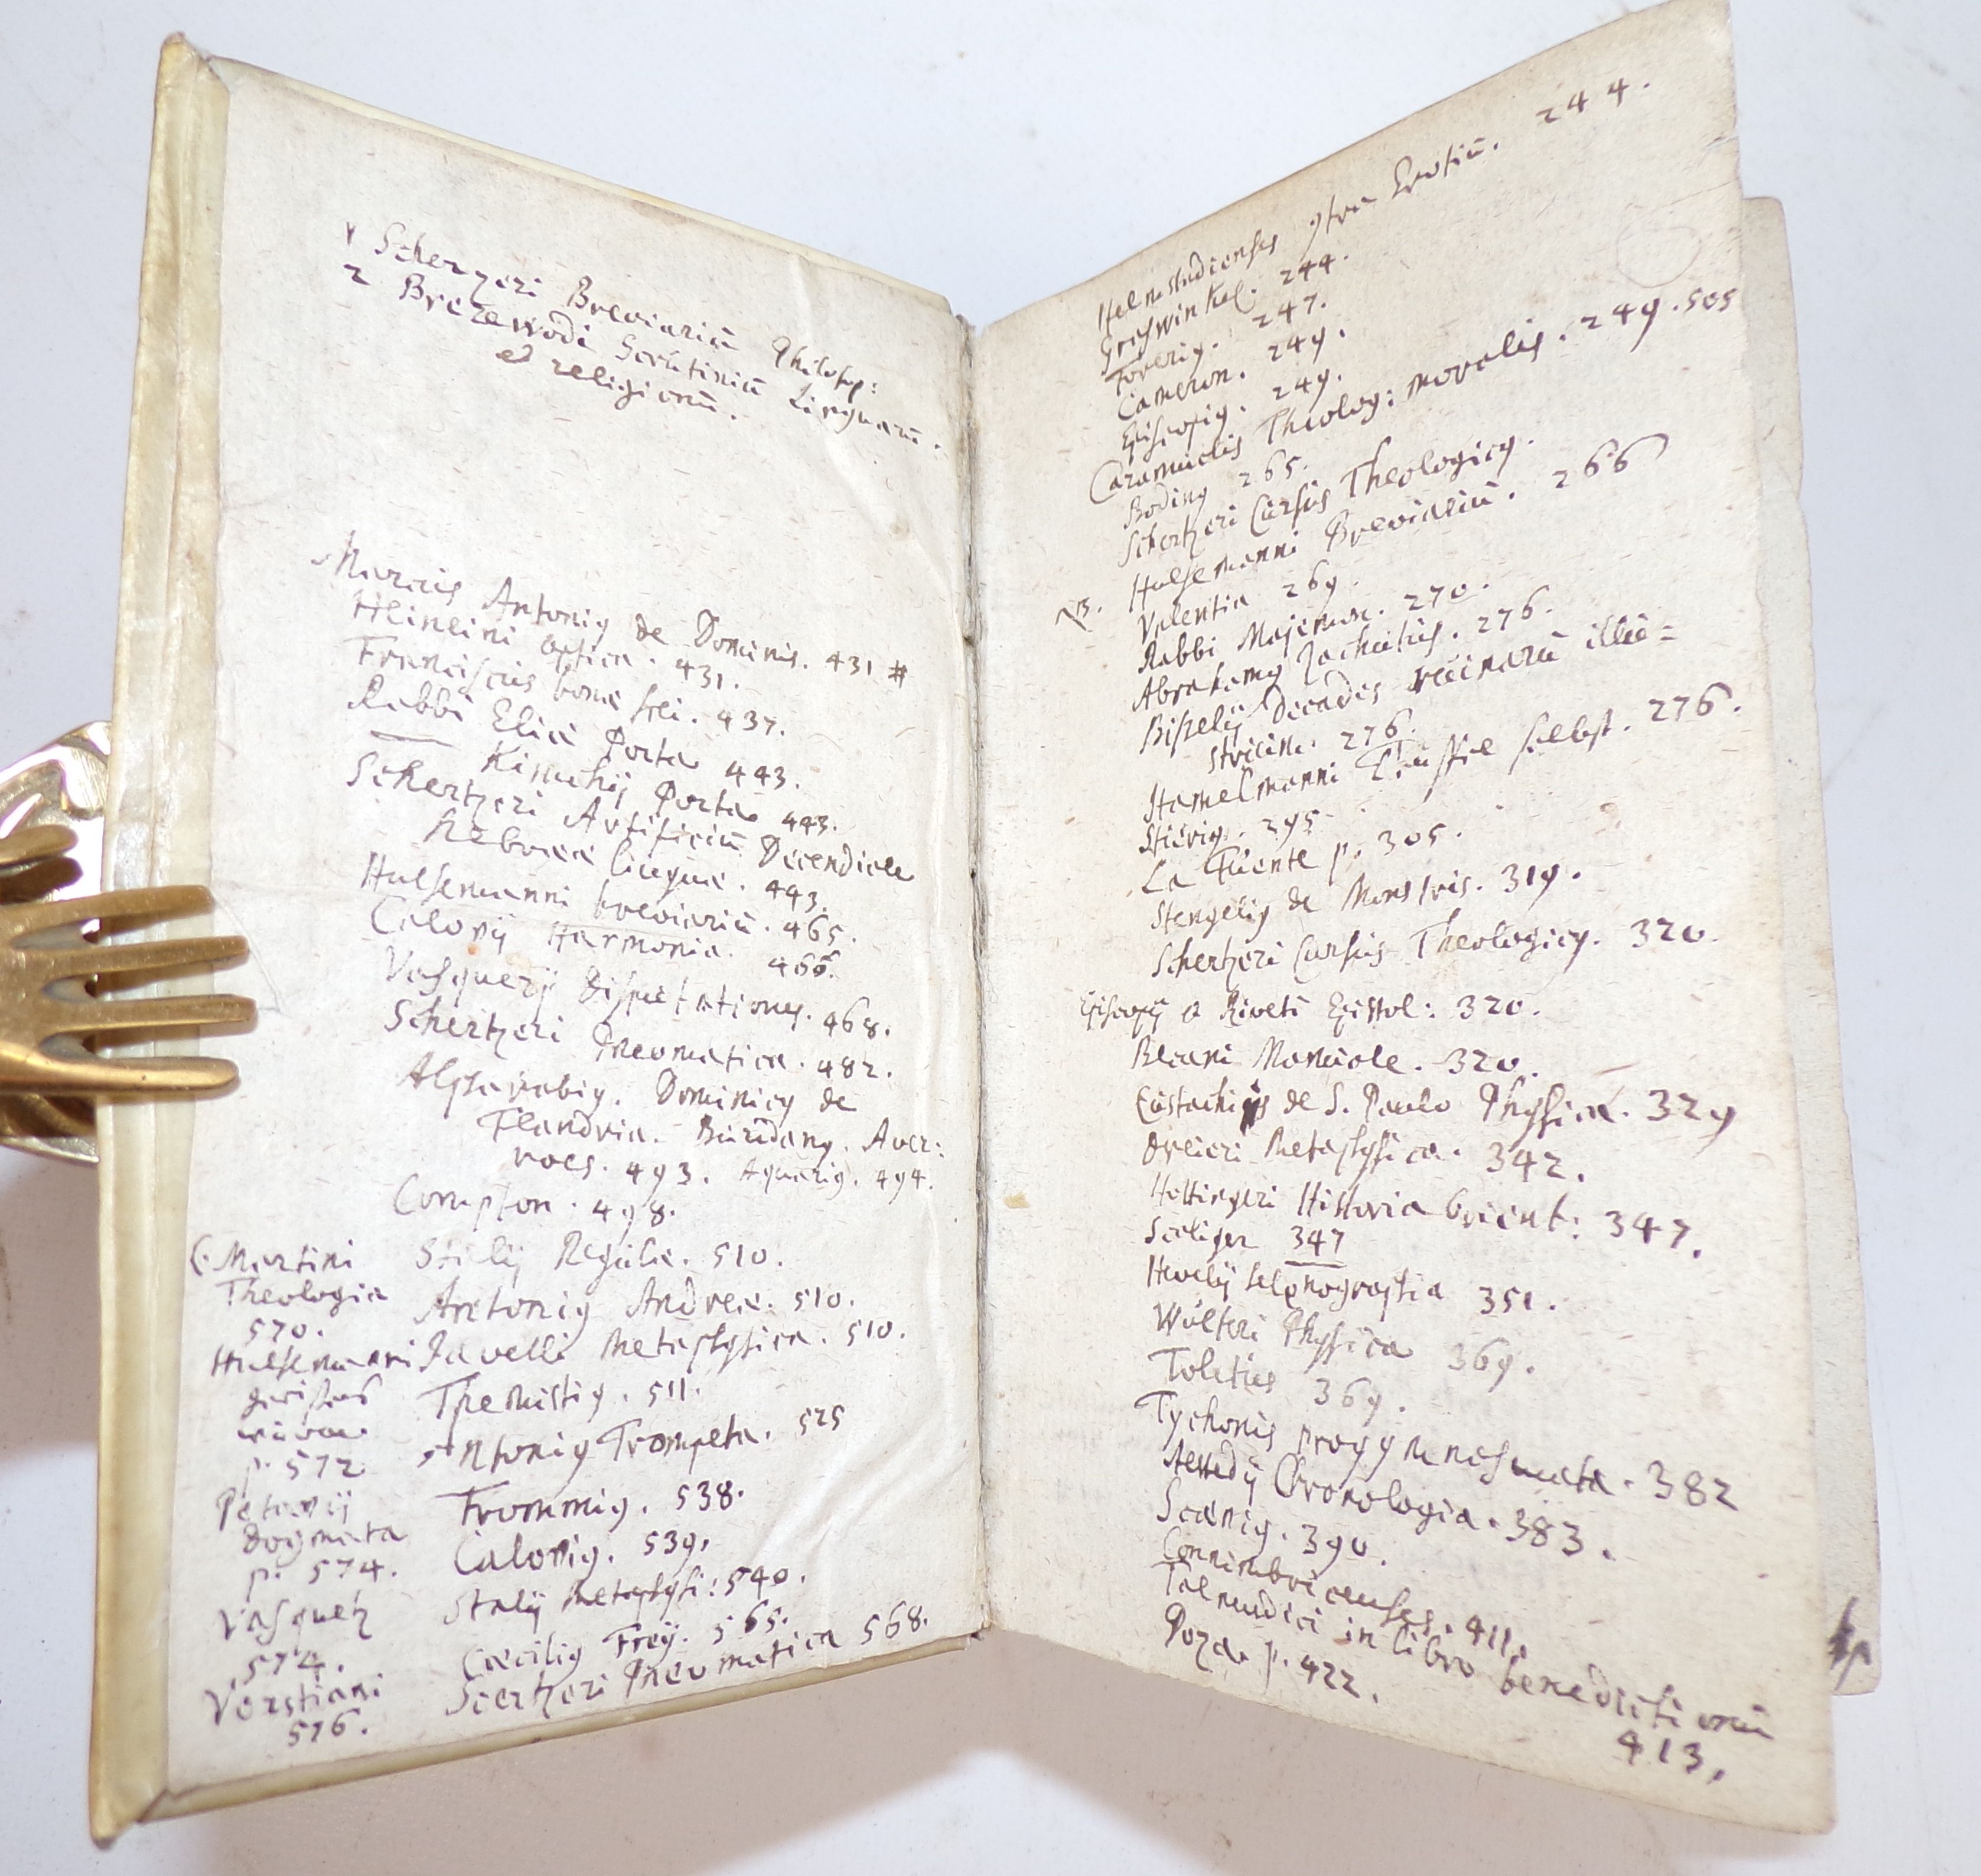 1 Scherzeri Breviariū Philosop:
2 Brerewodi Scrutiniū Linguarū.
et religionū.
Marcus Antoniꝰ de Dominis. 431 #
optica. 431.
Franciscus bonae spei. 437.
Rabbi Eliae Porta 443.
Kimchij Porta 443.
Schertzeri Artificiū Decendiale
hebraeae linguae. 443.
Hulsemanni breviariū. 465.
Calovij Harmonia. 466.
Vasquezij Disputationes. 468.
Schertzeri Pneumatica. 482.
Alpharabiꝰ. Dominicꝰ de
Flandria. Buridanꝰ. Aver:
roes. 493. Aquariꝰ. 494.
Compton. 498.
Stalij Regulae. 510.
Antoniꝰ Andreae. 510.
Javelli Metaphysica. 510.
Themistiꝰ. 511.
Antoniꝰ Trompeta. 525
Frommiꝰ. 538.
Caloviꝰ. 539.
Stalij Metaphysi: 540.
Caeciliꝰ Freij. 565.
Scertzeri Pneumatica 568.
C. Martini
Theologia
570.
Hulsemanni
p. 572
Petavij
dogmata
p. 574.
Vasquetz
574.
Vorstiani
576.
Helmstadienses ꝯtra Erotiū. 244.
Graswinkel. 244.
Foreriꝰ. 247.
Cameron. 249.
Episcopiꝰ. 249.
Caramuelis Theolog: moralis. 249. 505
Bodinꝰ 265.
Schertzeri Cursus Theologicꝰ.
NB. Hulsemanni Breviariū. 266
Valentia 269.
Rabbi 270.
Abrahamꝰ Zachutus. 276.
Biselij Decades illu=
strium. 276.
Hamelmanni Teuffel selbst. 276.
295.
La Fuente p. 305.
Stengeliꝰ de Monstris. 319.
Schertzeri Cursus Theologicꝰ. 320.
Episcopij et Riveti Epistol: 320.
Becani Manuale. 320.
Eustachius de S. Paulo Physica. 329
Dreieri Metaphysica. 342.
Hottingeri Historia Orient: 347.
Scaliger 347
Hevelij selenographia 351.
Wolteri Physica 369.
Toletus 369.
Tychonis progymnasmata. 382
Alstedij Chronologia. 383.
390.
Connimbricenses. 411.
Talmudici in libro benedictionū
413.
Poza p. 422.